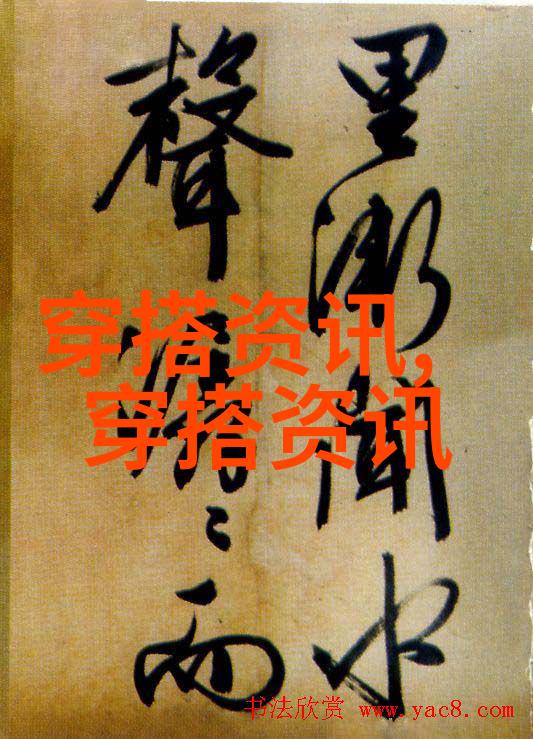 里漸聞水
聲潺〻而
穿搭资讯,
穿搭资讯
书法欣赏 www.yac8.com